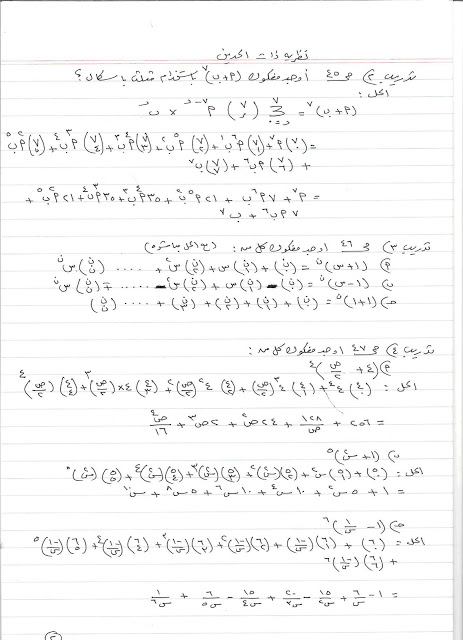 نظرية ذات الحدين
تدريب ٢ ص ٤٥ أوجد مفكوك (أ+ب)^٧ باستخدام مثلث باسكال ؟
الحل :
(أ+ب)^٧ = Σ^٧_{ر=٠} (٧ ر) أ^{٧-ر} × ب^ر
= (٧ ٠) أ^٧ + (٧ ١) أ^٦ ب + (٧ ٢) أ^٥ ب^٢ + (٧ ٣) أ^٤ ب^٣ + (٧ ٤) أ^٣ ب^٤ + (٧ ٥) أ^٢ ب^٥
+ (٧ ٦) أ ب^٦ + (٧ ٧) ب^٧
= أ^٧ + ٧ أ^٦ ب + ٢١ أ^٥ ب^٢ + ٣٥ أ^٤ ب^٣ + ٣٥ أ^٣ ب^٤ + ٢١ أ^٢ ب^٥ +
٧ أ ب^٦ + ب^٧
تدريب ٣ ص ٤٦ اوجد مفكوك كل من : (مع الحل مباشرة)
أ) (١+س)^ن = (ن ٠) + (ن ١) س + (ن ٢) س^٢ + ..... (ن ن) س^ن
ب) (١-س)^ن = (ن ٠) - (ن ١) س + (ن ٢) س^٢ - ..... ∓ (ن ن) س^ن
ج) (١+١)^ن = (ن ٠) + (ن ١) + (ن ٢) + (ن ٣) + .... (ن ن)
تدريب ٤ ص ٤٧ اوجد مفكوك كل من :
أ) (٤ + ص/٢)^٤
الحل : (٤ ٠) ٤^٤ + (٤ ١) ٤^٣ (ص/٢) + (٤ ٢) ٤^٢ (ص/٢)^٢ + (٤ ٣) ٤ × (ص/٢)^٣ + (٤ ٤) (ص/٢)^٤
= ٢٥٦ + ١٢٨/ص + ٢٤ ص^٢ + ٢ ص^٣ + ص^٤/١٦
ب) (١ + س^٢)^٥
الحل : (٥ ٠) + (٥ ١) س^٢ + (٥ ٢) (س^٢)^٢ + (٥ ٣) (س^٢)^٣ + (٥ ٤) (س^٢)^٤ + (٥ ٥) (س^٢)^٥
= ١ + ٥ س^٢ + ١٠ س^٤ + ١٠ س^٦ + ٥ س^٨ + س^١٠
ج) (١ - ١/س)^٦
الحل = (٦ ٠) + (٦ ١) (-١/س) + (٦ ٢) (-١/س)^٢ + (٦ ٣) (-١/س)^٣ + (٦ ٤) (-١/س)^٤ + (٦ ٥) (-١/س)^٥
+ (٦ ٦) (-١/س)^٦
= ١ - ٦/س + ١٥/س^٢ - ٢٠/س^٣ + ١٥/س^٤ - ٦/س^٥ + ١/س^٦